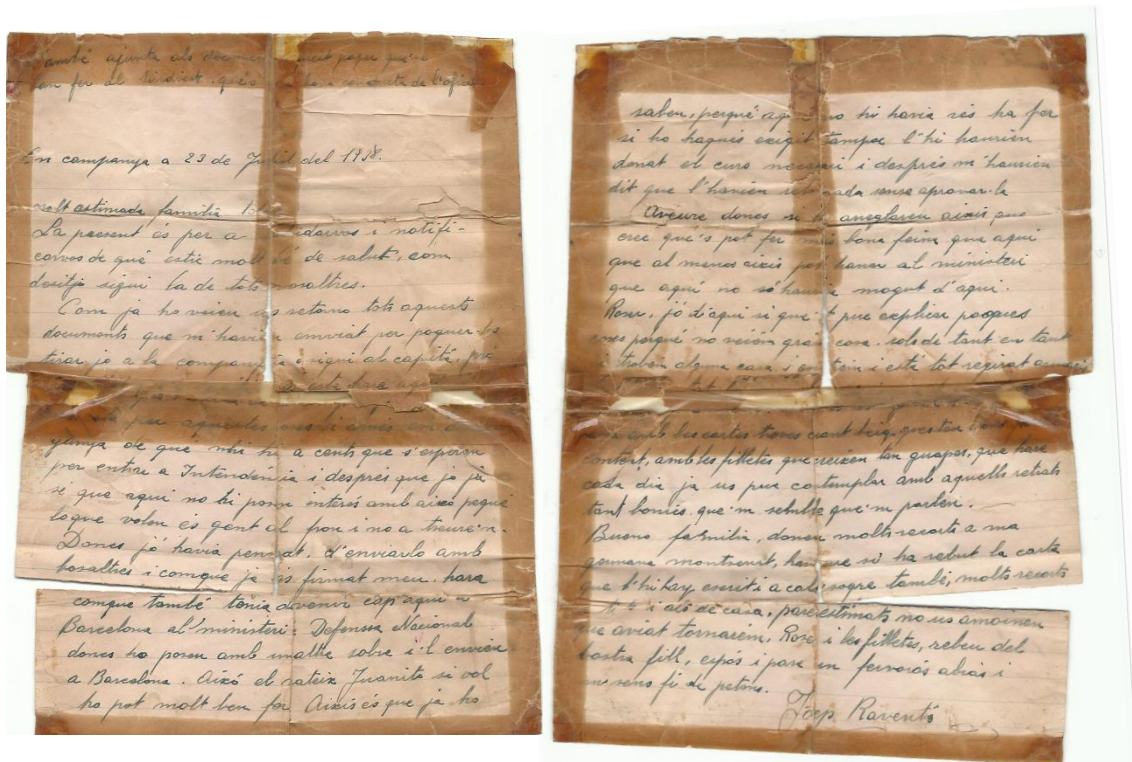 també ajunta als documents aquest paper que'm
van fer al Sindicat que's conducta de l'ofici
En campanya a 23 de Juliol del 1938.
molt estimada familia
La present és per a saludarvos i notifi-
carvos de que estic molt bé de salut, com
desitjo sigui la de tots vosaltres.
Com ja ho veieu us retorno tots aquests
documents que m'havieu enviat per poguer-los
tirar jo a la companyia o sigui al capità, pro
està hara
per aquestes
de que n'hi ha a cents que s'esperen
per entrar a Intendéncia i després que jo ja
sé que aqui no hi posen interés amb aixo perque
loque volen és gent al fron i no a treure'n.
Dones jó havia pensat, d'enviarlo amb
bosaltres i comque ja és firmat meu, hara
comque també tenia devenir cap aqui a
Barcelona al'ministeri: Defenssa Nacional
dones ho poseu amb unaltre sobre i'l envieu
a Barcelona. Aixó el mateix Juanito si vol
ho pot molt ben fer Aixis és que ja ho
sabeu, perqué aqui no hi havia rés ha fer
si ho hagués exigit tampoc l'hi haurien
donat el curs necesari i després m'haurien
dit que l'havien retornada sense aprovar-la
Aveure dones si ho arreglareu aixis que
crec que's pot fer més bona feina que aqui
que al menos aixis pot hanar al ministeri
que aqui no só hauria mogut d'aqui.
Roser, jó d'aqui si que't puc explicar poques
coses porqué no veiém gran cosa. sols de tant en tant
trobem alguna casa i està tot regirat
amb les cartes teves
content, amb les filletes que seixen tan guapes, que hara
cada dia ja us puc contemplar amb aquells retrats
tant bonics que'm sembla que'm parlen.
Bueno familia, doneu molts recorts a ma
germana montserrat, si ha rebut la carta
que l'hi vaig escriut i a cal sogre també, molts recorts
i als de casa, pare estimats no us amoineu
que aviat tornarém. Rose i les filletes, rebeu del
bostre fill, espós i pare un fervorós abras i
un sens fi de petons.
Josep Raventós